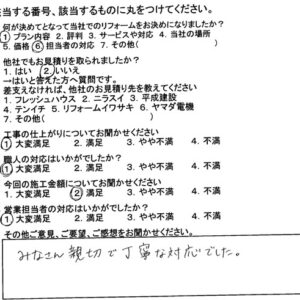 該当する番号、該当するものに丸をつけてください。
何が決めてとなって当社でのリフォームをお決めになりましたか?
①プラン内容 2. 評判 3. サービスや対応 4. 当社の場所
5. 価格 ⑥担当者の対応 7. その他(
他社でもお見積りを取られましたか?
1. はい ②いいえ
→はいと答えた方へ質問です。
差支えなければ、他社のお見積り先を教えてください
1. フレッシュハウス 2. ニラスイ 3. 平成建設
4. テンイチ 5. リフォームイワサキ 6. ヤマダ電機
7. その他(
工事の仕上がりについてお聞かせください
①大変満足 2. 満足 3. やや不満 4. 不満
職人の対応はいかがでしたか?
①大変満足 2. 満足 3. やや不満 4. 不満
今回の施工金額についてお聞かせください
1. 大変満足 ②満足 3. やや不満 4. 不満
営業担当者の対応はいかがでしたか?
①大変満足 2. 満足 3. やや不満 4. 不満
その他ご意見、ご要望、ご感想をお聞かせください。
みなさん親切で丁寧な対応でした。